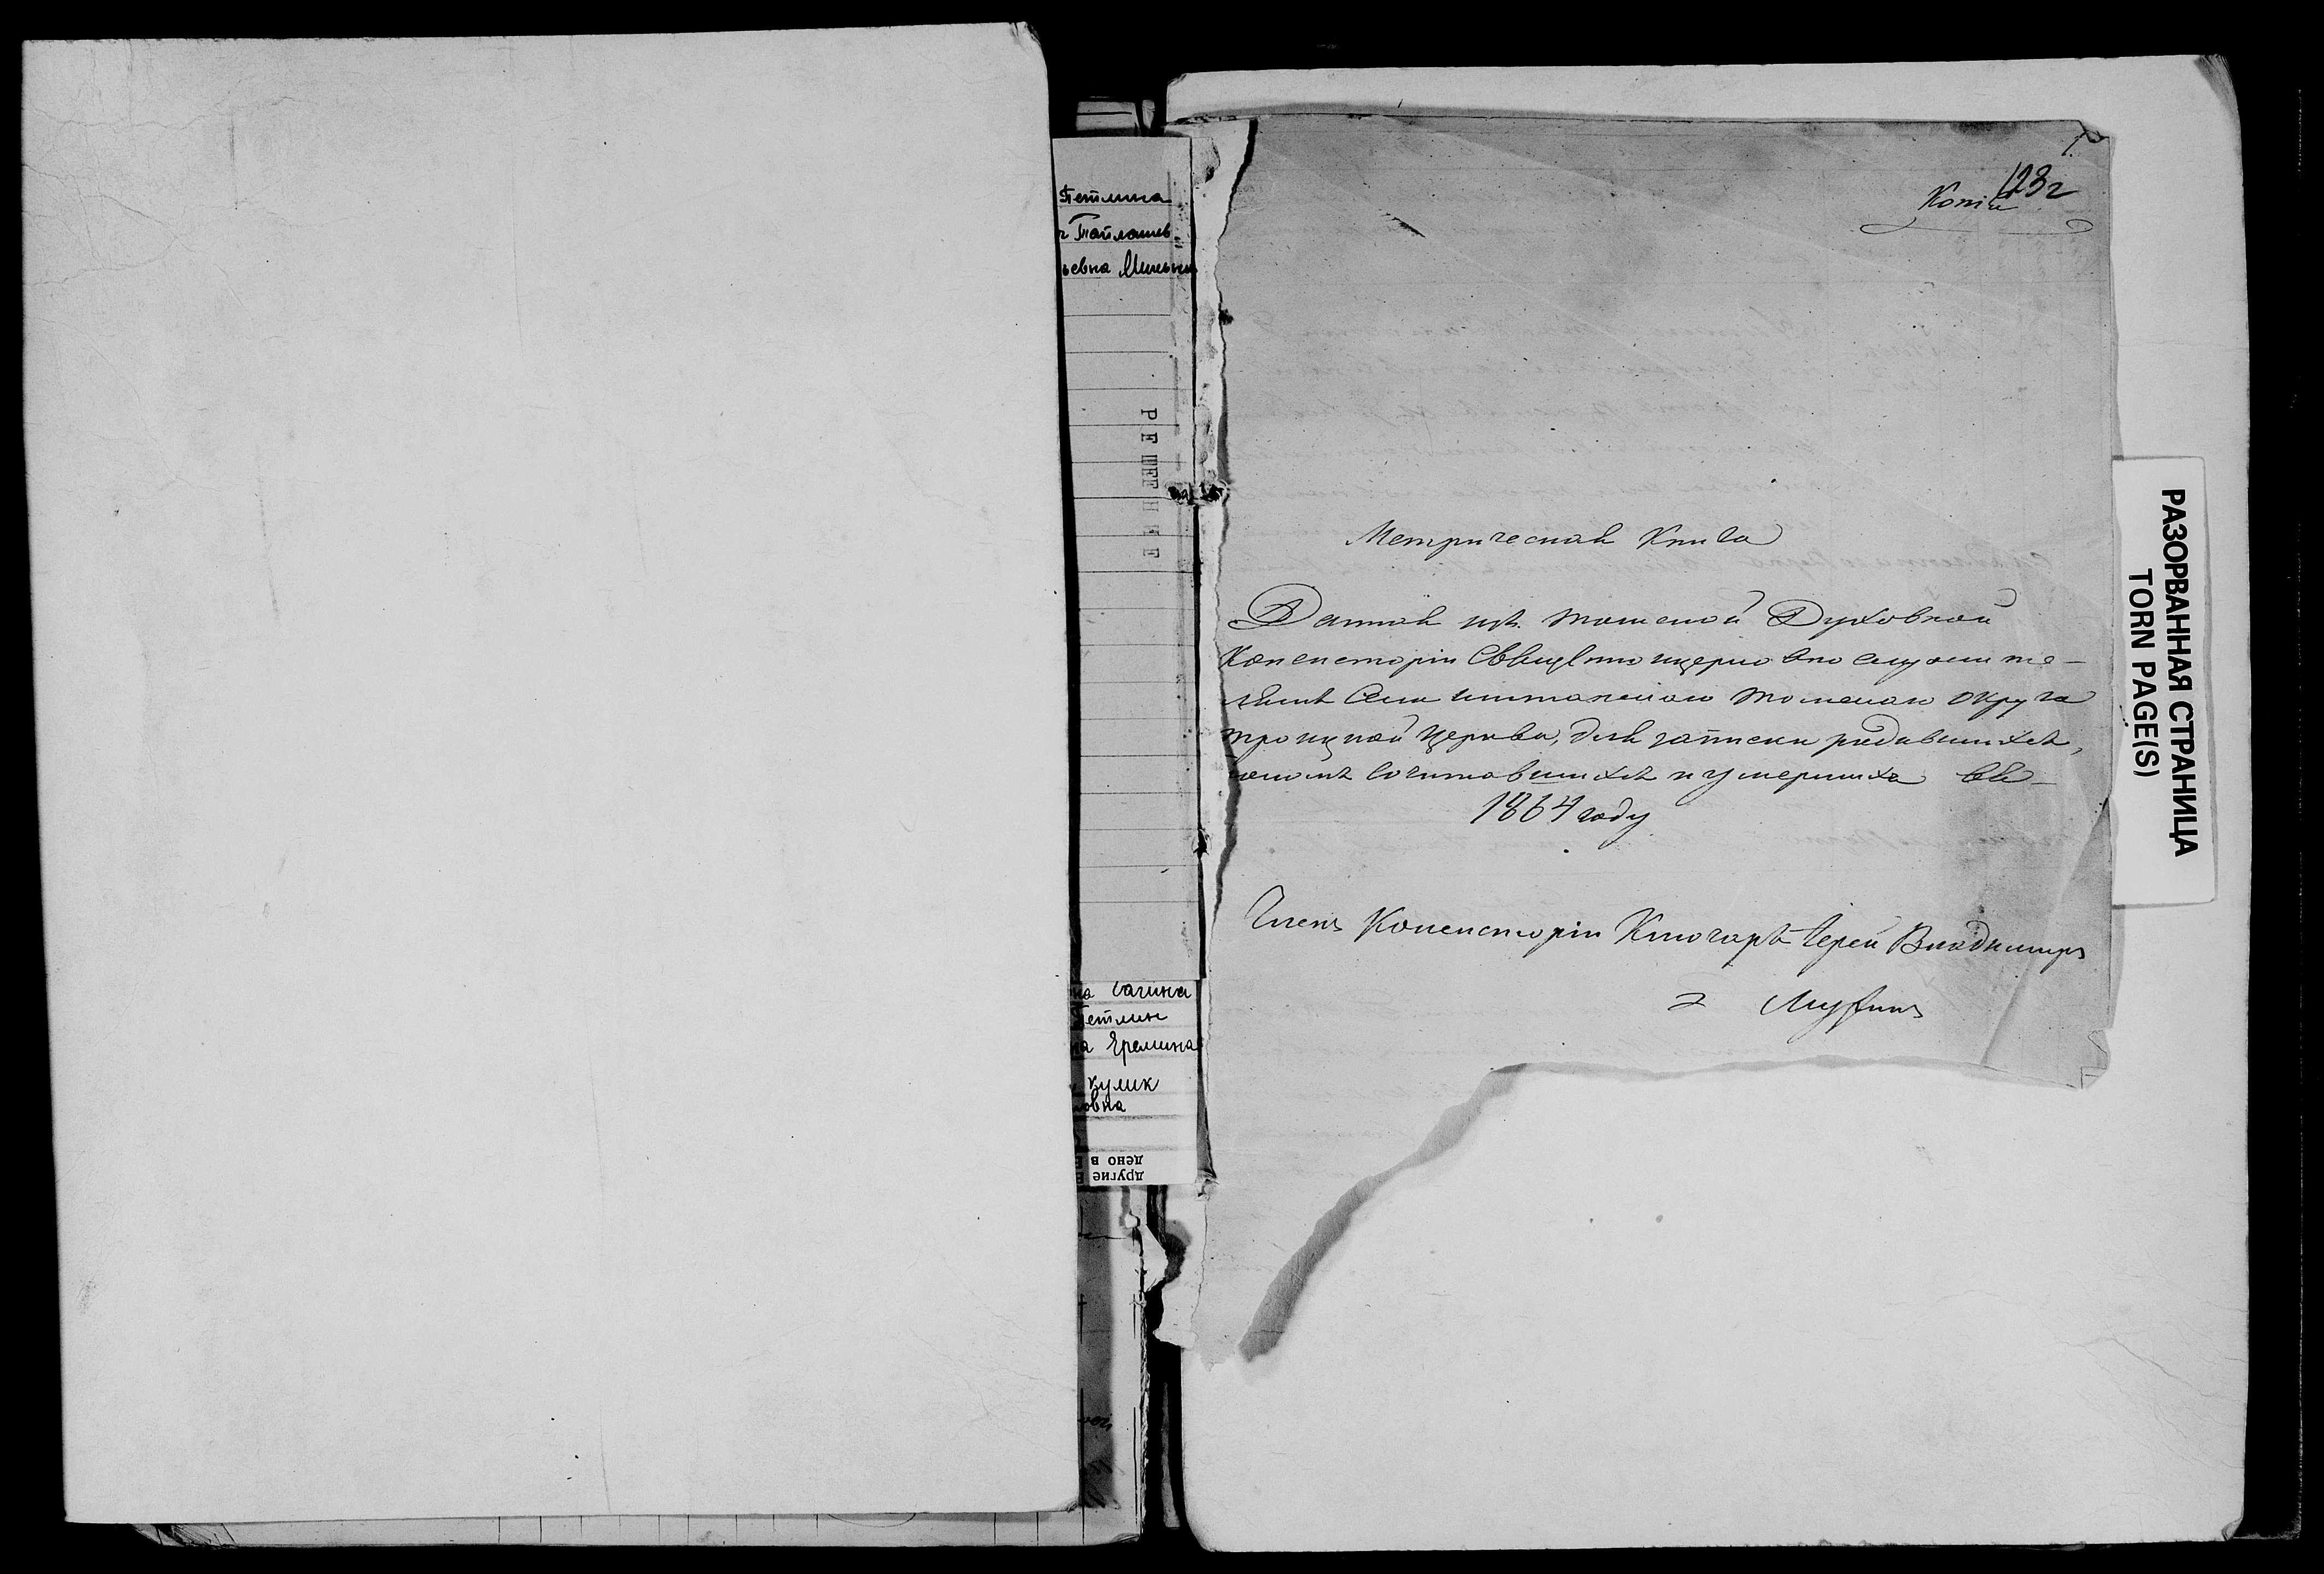 Петлина
ч Таилашев
ьевна Мильни
РЕШЕНИЕ
на Сагина
Петлин
на Еремина
кулик
ловна
другие
дено в
1.
Копія 123г
Метрическая Книга
Данная изъ Томской Духовной
Консисторіи Священноцерковнослужите-
лямъ Села Томскаго округа
Троицкой Церкви, для записки родившихся,
бракомъ сочитавшихся и умершихъ въ
1864 году
Членъ Консисторіи Ключарь Іерей Владимиръ
РАЗОРВАННАЯ СТРАНИЦА
TORN PAGE(S)